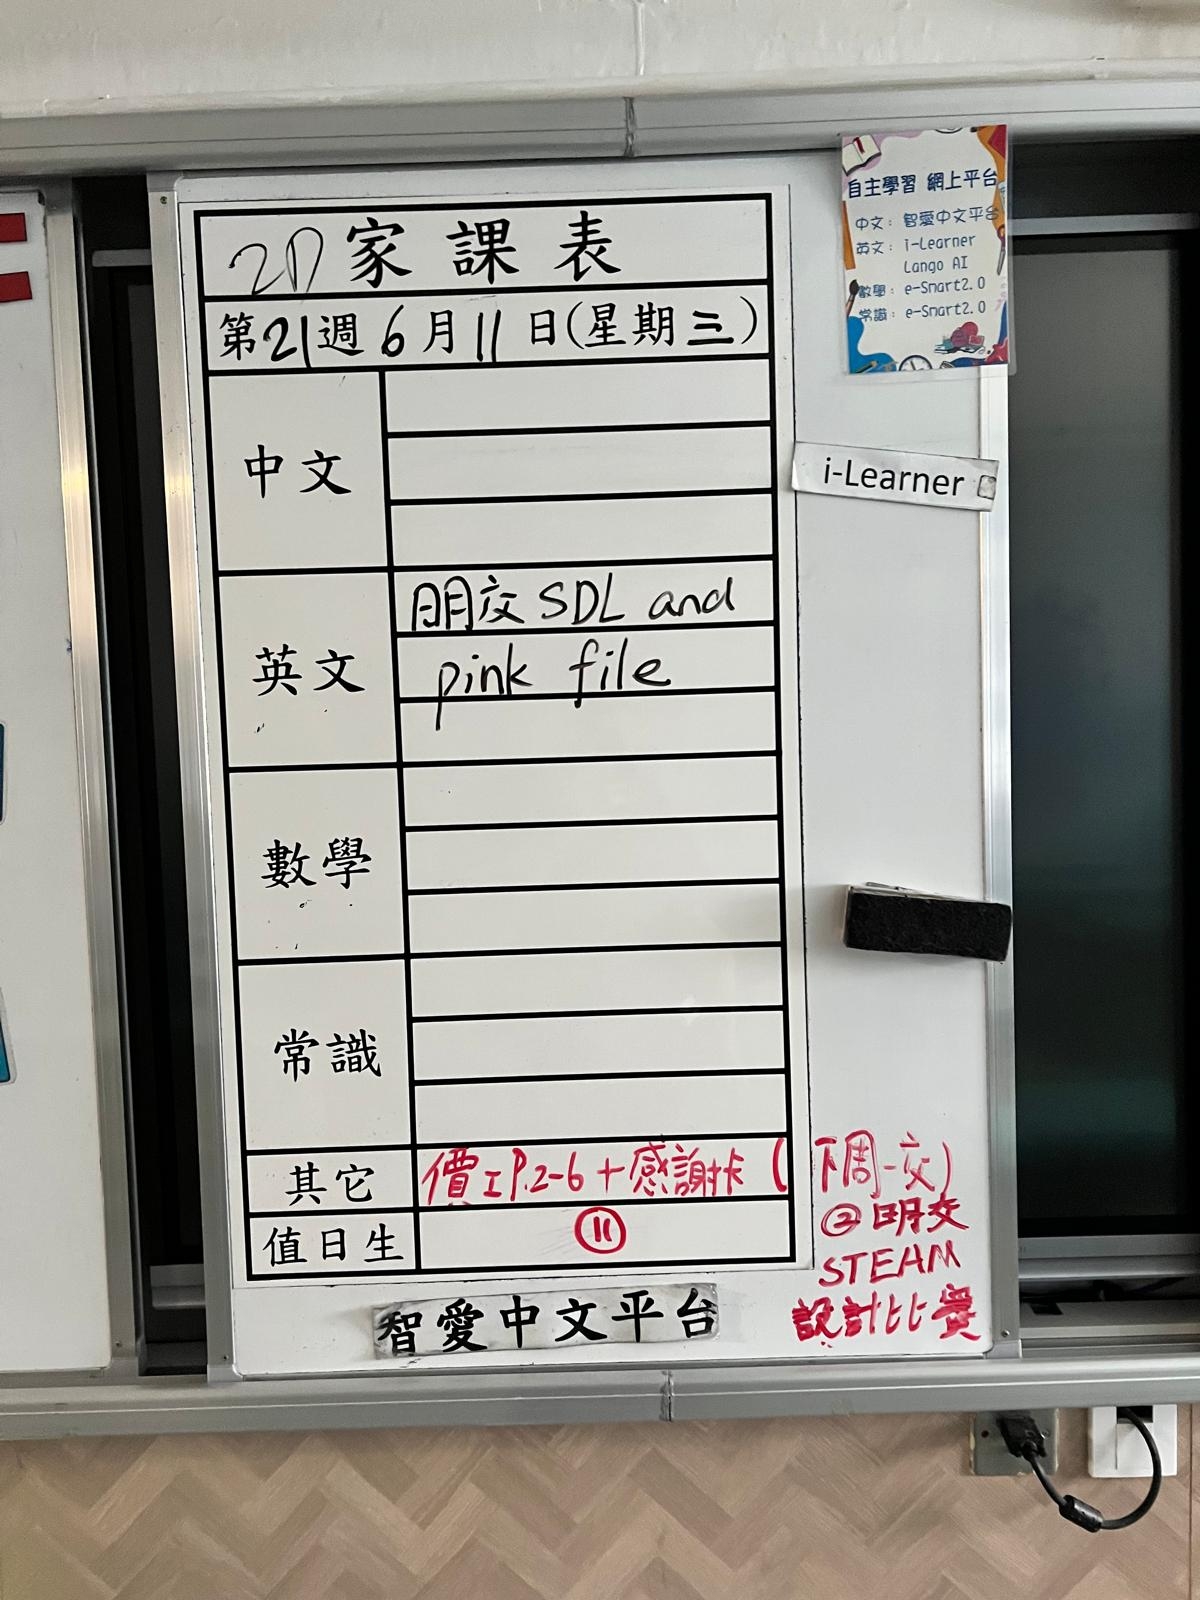 2D 家課表
第21週 6月11日(星期三)
中文
英文
明交 SDL and
pink file
數學
常識
其它
價工P.2-6+感謝卡(下周一交)
② 明交
STEAM
設計比賽
值日生
11
智愛中文平台
自主學習 網上平台
中文: 智愛中文平台
英文: i-Learner
Lango AI
數學: e-Smart2.0
常識: e-Smart2.0
i-Learner